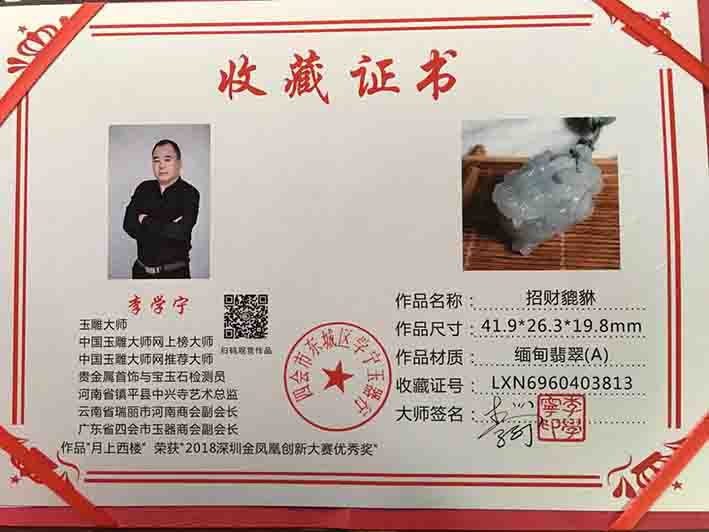 收藏证书
李学宁
玉雕大师
中国玉雕大师网上榜大师
中国玉雕大师网推荐大师
贵金属首饰与宝玉石检测员
河南省镇平县中兴寺艺术总监
云南省瑞丽市河南商会副会长
广东省四会市玉器商会副会长
作品"月上西楼" 荣获"2018深圳金凤凰创新大赛优秀奖"
扫码观赏作品
四会市东城区学宁玉器行
作品名称： 招财貔貅
作品尺寸： 41.9*26.3*19.8mm
作品材质： 缅甸翡翠(A)
收藏证号： LXN6960403813
大师签名：
李學寧印